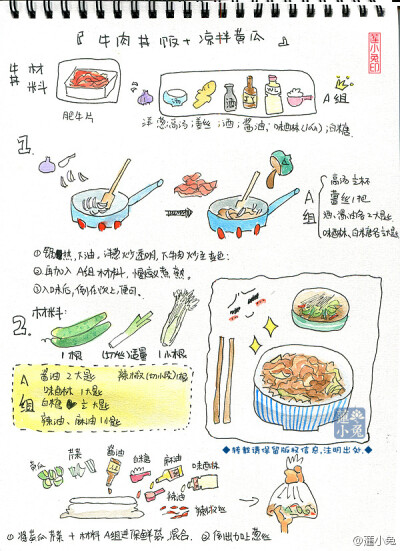 『牛肉丼饭+凉拌黄瓜』
蓝小兔印
牛丼 材料
肥牛片
A组
洋葱;高汤;姜丝;酒;酱油;味醂(mirin);白糖
1.
A组
高汤 1/2杯
姜丝 1把
酒、酱油各2大匙
味醂、白糖各1/2大匙
①锅热,下油。洋葱炒透明,下牛肉炒至变色;
②再加入A组材料,慢火煮熟。
③入味后,倒在饭上,便可。
2.
材料:
1根
(切丝)适量
1小根
A组
酱油 2大匙
辣椒(切小段)1根
味醂 1大匙
白糖 1/2大匙
辣油、麻油 1小匙
蓝小兔
◆转载请保留版权信息,注明出处.◆
黄瓜
芹菜
酱油
白糖
麻油
味醂
辣油
辣椒
①将黄瓜芹菜+材料A组进保鲜袋,混合.
②倒出加上葱丝
@蓝小兔